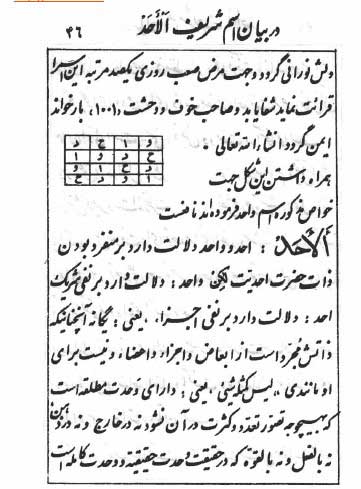 در بیان اسم شریف اَلْأَحَدْ
۴۶
دلش نورانی گردد و جهت مرض صعب روزی یکصد مرتبه این اسم را
قرائت نماید شفا یابد و صاحب خوف و وحشت «۱۰۰۱» بار خواند
ایمن گردد انشاء الله تعالی :
و ا ح د
ح د و ا
د ح ا و
ا و د ح
همراه داشتن این شکل جهت
خواص مذکوره اسم واحد فرموده‌اند نافعست
اَلْأَحَدْ : احد و واحد دلالت دارد بر منفرد بودن
ذات حضرت احدیت لکن واحد : دلالت دارد بر نفی شریک
احد : دلالت دارد بر نفی اجزاء، یعنی : یگانه آنچنانیکه
ذاتش مُجرّد است از ابعاض و اجزاء و اعضاء، و نیست برای
او مانندی «لیس کمثله شیئی» یعنی : دارای وَحدت مطلقه است
که بهیچوجه تصوّر تعدّد و کثرت در آن نشود نه در خارج و نه در ذهن
نه بالفعل و نه بالقوّه که در حقیقت وحدت حقیقیّه و وحدت کامله است